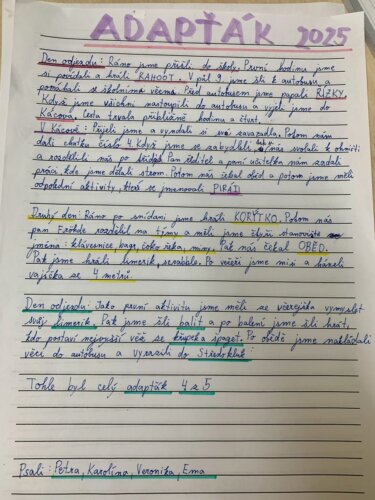 ADAPŤÁK 2025
Den odjezdu: Ráno jsme přišli do školy. První hodinu jsme
si povídali a hráli KAHOOT. V půl 9 jsme šli k autobusu a
pomáhali se školníma věcma. Před autobusem jsme papali ŘÍZKY.
Když jsme všichni nastoupili do autobusu a vyjeli jsme do
Kácova. Cesta trvala přibližně hodinu a čtvrt.
V Kácově: Přijeli jsme a vyndali si svá zavazadla. Potom nám
dali chatku číslo 4. Když jsme se zabydleli, tak nás svolali k ohništi
a rozdělili nás po třídě. Pan ředitel a paní učitelka nám zadali
práci, kde jsme dělali strom. Potom nás čekal oběd a potom jsme měli
odpolední aktivity, která se jmenovali PIRÁTI
Druhý den: Ráno po snídani jsme hráli KORÝTKO. Potom nás
pan rozdělil na týmy a měli jsme čtyři stanoviště
jména: klávesnice, bagr, čoko řeka, miny. Pak nás čekal OBĚD.
Pak jsme hráli limerik, scrabble. Po večeři jsme a házeli
vajíčka ze 4 metrů
Den odjezdu: Jako první aktivitu jsme měli ze včerejška vymyslet
svůj limerik. Pak jsme šli balit a po balení jsme šli hrát,
kdo postaví nejvyšší věž ze křupek a špaget. Po obědě jsme nakládali
věci do autobusu a vyrazili do Středokluk
Tohle byl celý adapťák 4 z 5
Psali: Petra, Karolína, Veronika, Ema